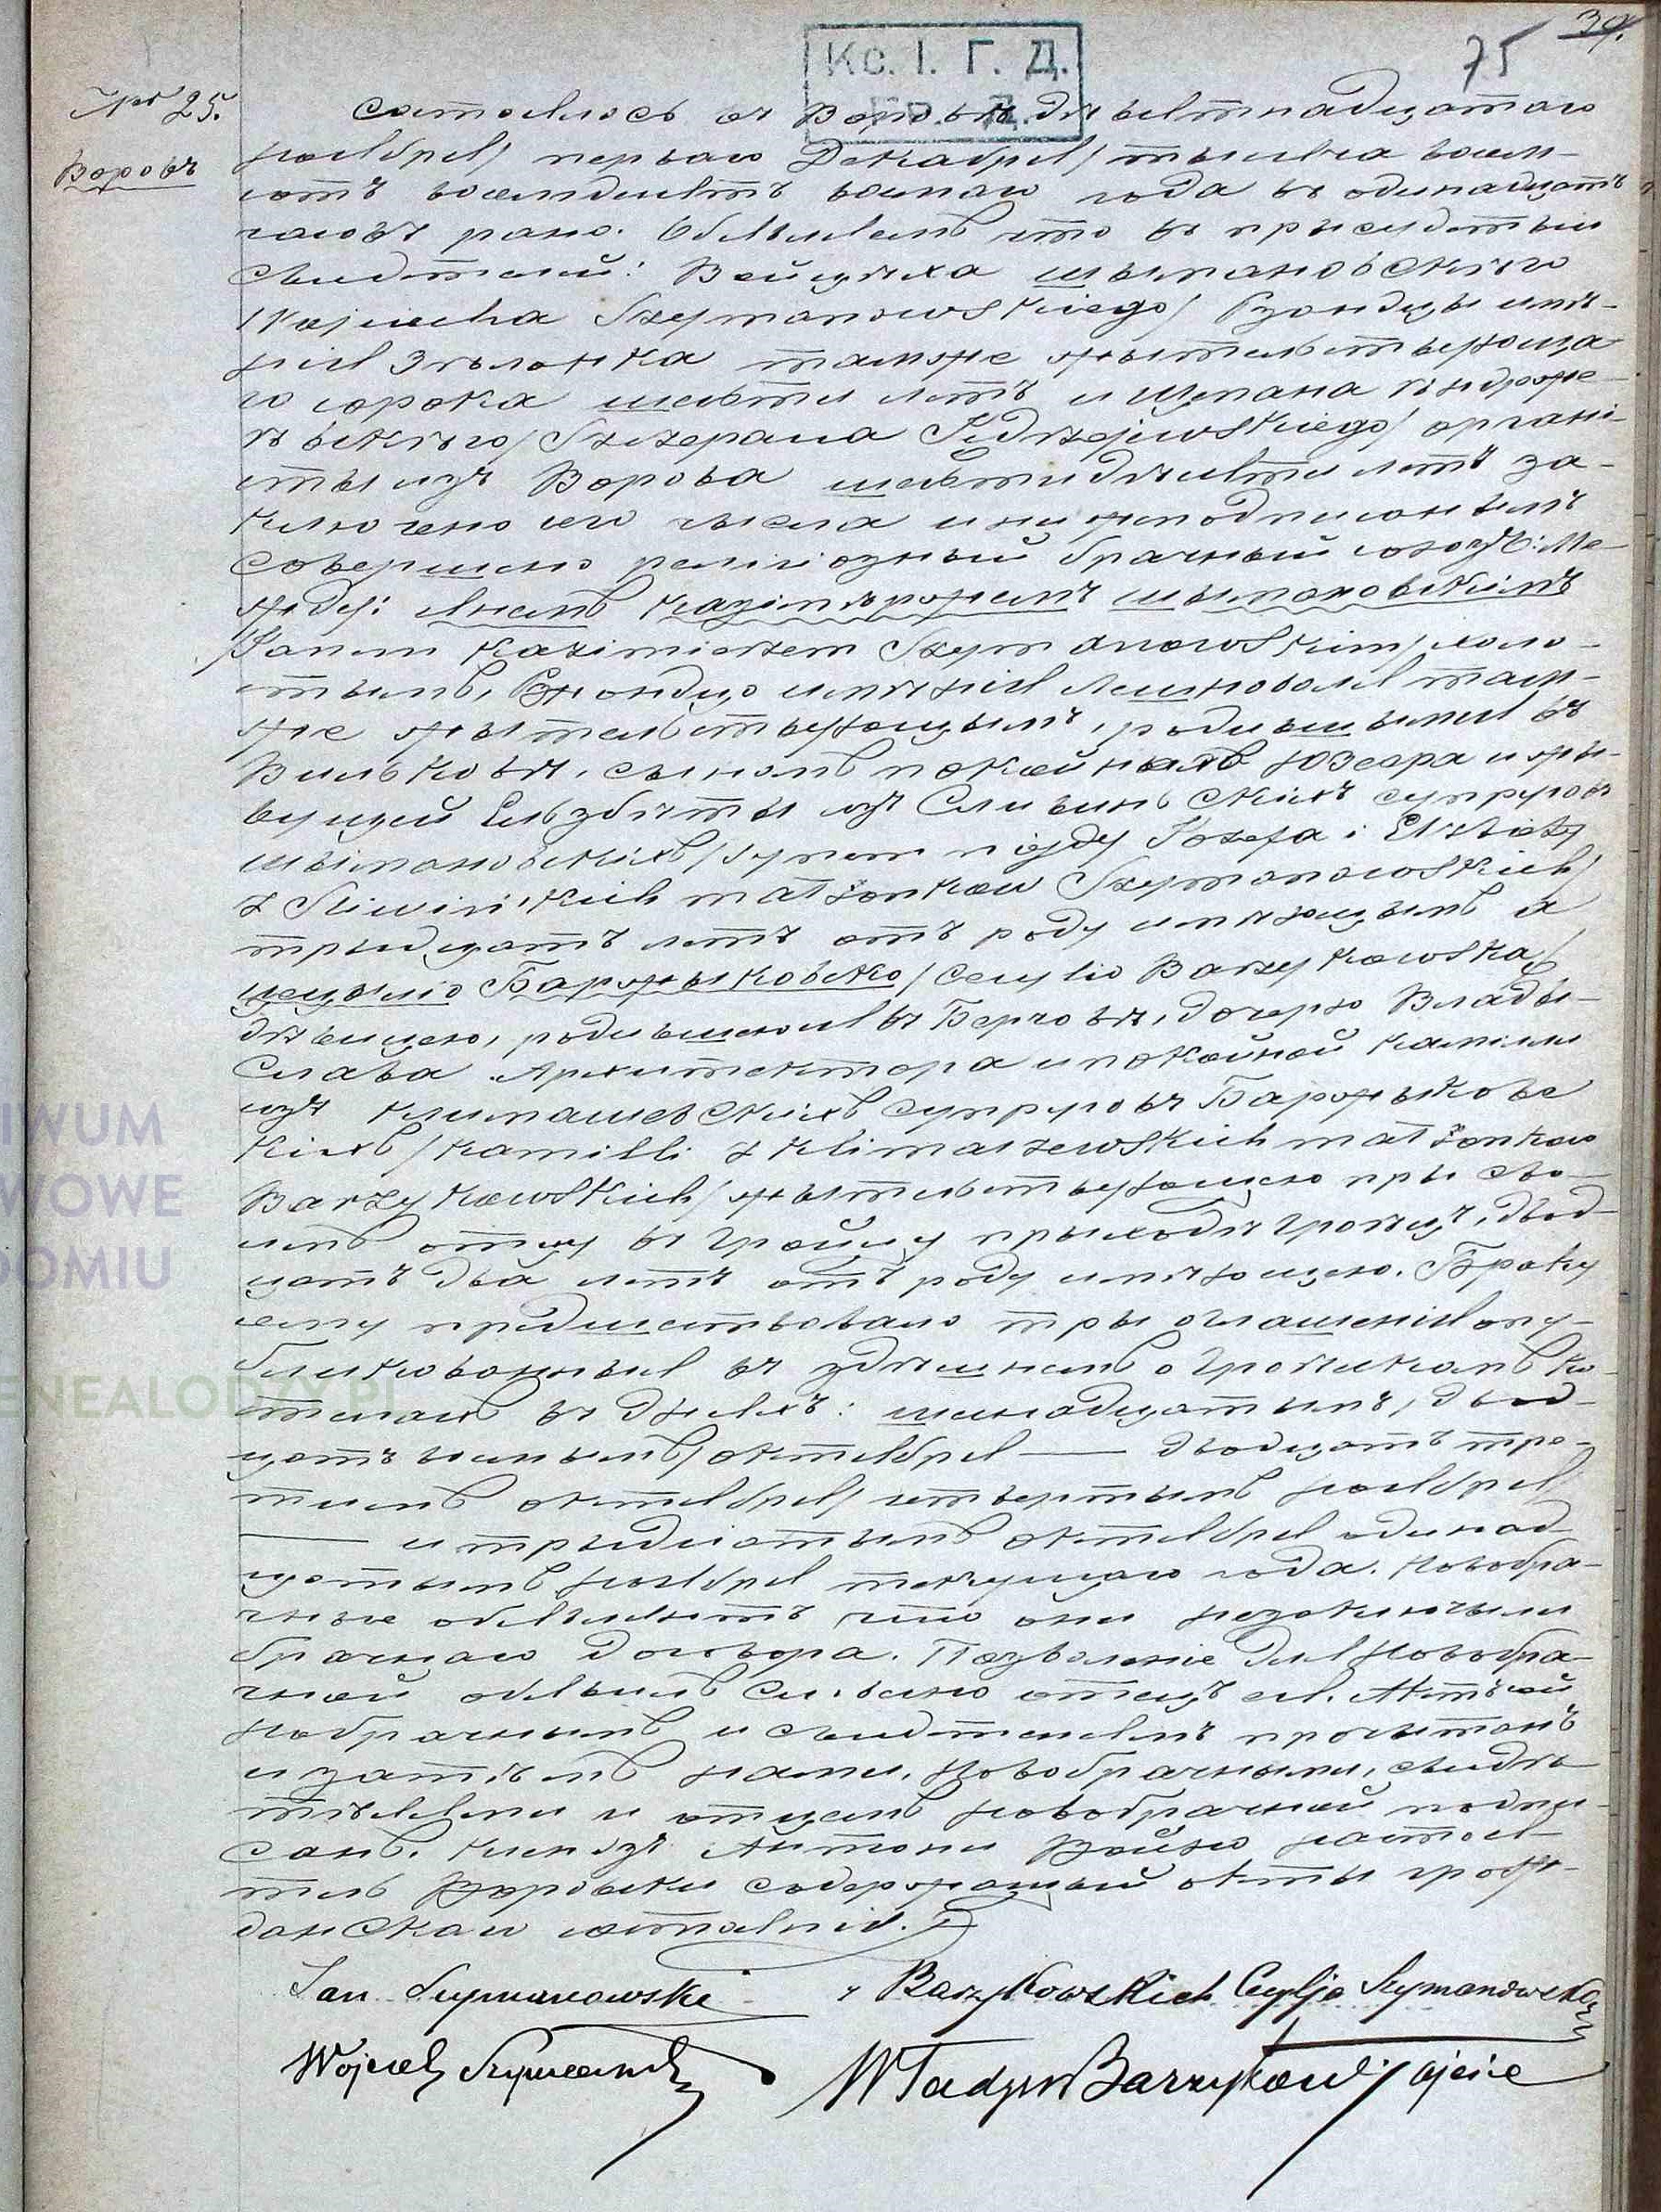 39.
75
Кс. I. Г. Д.
№ 25.
Воровъ
Состоялось въ Воровѣ девятнадцатаго
Ноября/ перваго Декабря/ тысяча восем-
сотъ восемдесятъ года въ одинадцать
часовъ рано. Объявляемъ что въ присудствіи
свидѣтелей: Войцѣха Шымановскѣго
/Wojciecha Szymanowskiego/ Рзондцы имѣ-
нія тамже жытельствующа
го сорока шести лѣтъ и Щепана Ѣндрже
ѣвскѣго/ Szczepana Jędrzejewskiego/ органі-
сты изъ Ворова шестидѣсяти лѣтъ за-
ключено сего числа
совершено религіозный брачный союзъ: Ме-
жду: Яномъ Казімѣржемъ Шымановскімъ
/Janem Kazimierzem Szymanowskim/ холо-
стымъ, Ржондцо имѣнія там-
же жытельствующымъ, родившымся въ
Вильковѣ, сыномъ покойнаго Юзефа и жы-
вущей Ельзбѣты изъ Сливинскихъ супруговъ
Шымановскихъ/ synem niegdy Józefa i Elżbiety
z Sliwińskich małżonków Szymanowskich/
трыдцать лѣтъ отъ роду имѣющымъ а
Цецылію Баржыковско/ Cecylio Barzykowską/
дѣвицею, родившеюся въ дочерю Влады-
слава Архитектора и покойной Камилли
изъ Климашевскихъ супруговъ Баржыковс
кихъ/ Kamilli z Klimaszewskich małżonków
Barzykowskich/ жытельствующею пры сво-
имъ отцу въ Гройцу прыходѣ Гроѣцъ, двад-
цать два лѣтъ отъ роду имѣющею. Браку
сему предшествовало тры оглашенія опу-
бликованныя въ здѣшнемъ о Гроѣцкомъ ко-
стелахъ въ дняхъ: шеснадцатымъ, двад-
цать осьмымъ/ октября — двадцать тре-
тимъ октября/ четвертымъ ноября/
— и трыдцатымъ октября одинад
цатымъ Ноября текущаго года. Новобра-
чные объявляютъ что они незаключыли
брачнаго договора. Позволеніе для Новобра-
чной объявилъ отецъ ея. Актъ сей
Новобрачнымъ и свидѣтелямъ прочытанъ
и затѣмъ нами, Новобрачными, свидѣ
тѣлями и отцемъ Новобрачной подпи-
санъ. Ксендзъ Антони Войно настоя-
тель Воровски содержащый акты граж-
данскаго состоянія.
Jan Szymanowski
z Barzykowskich Cecylja Szymanowska
Wojciech Szymanowski
Władysław Barzykowski ojciec